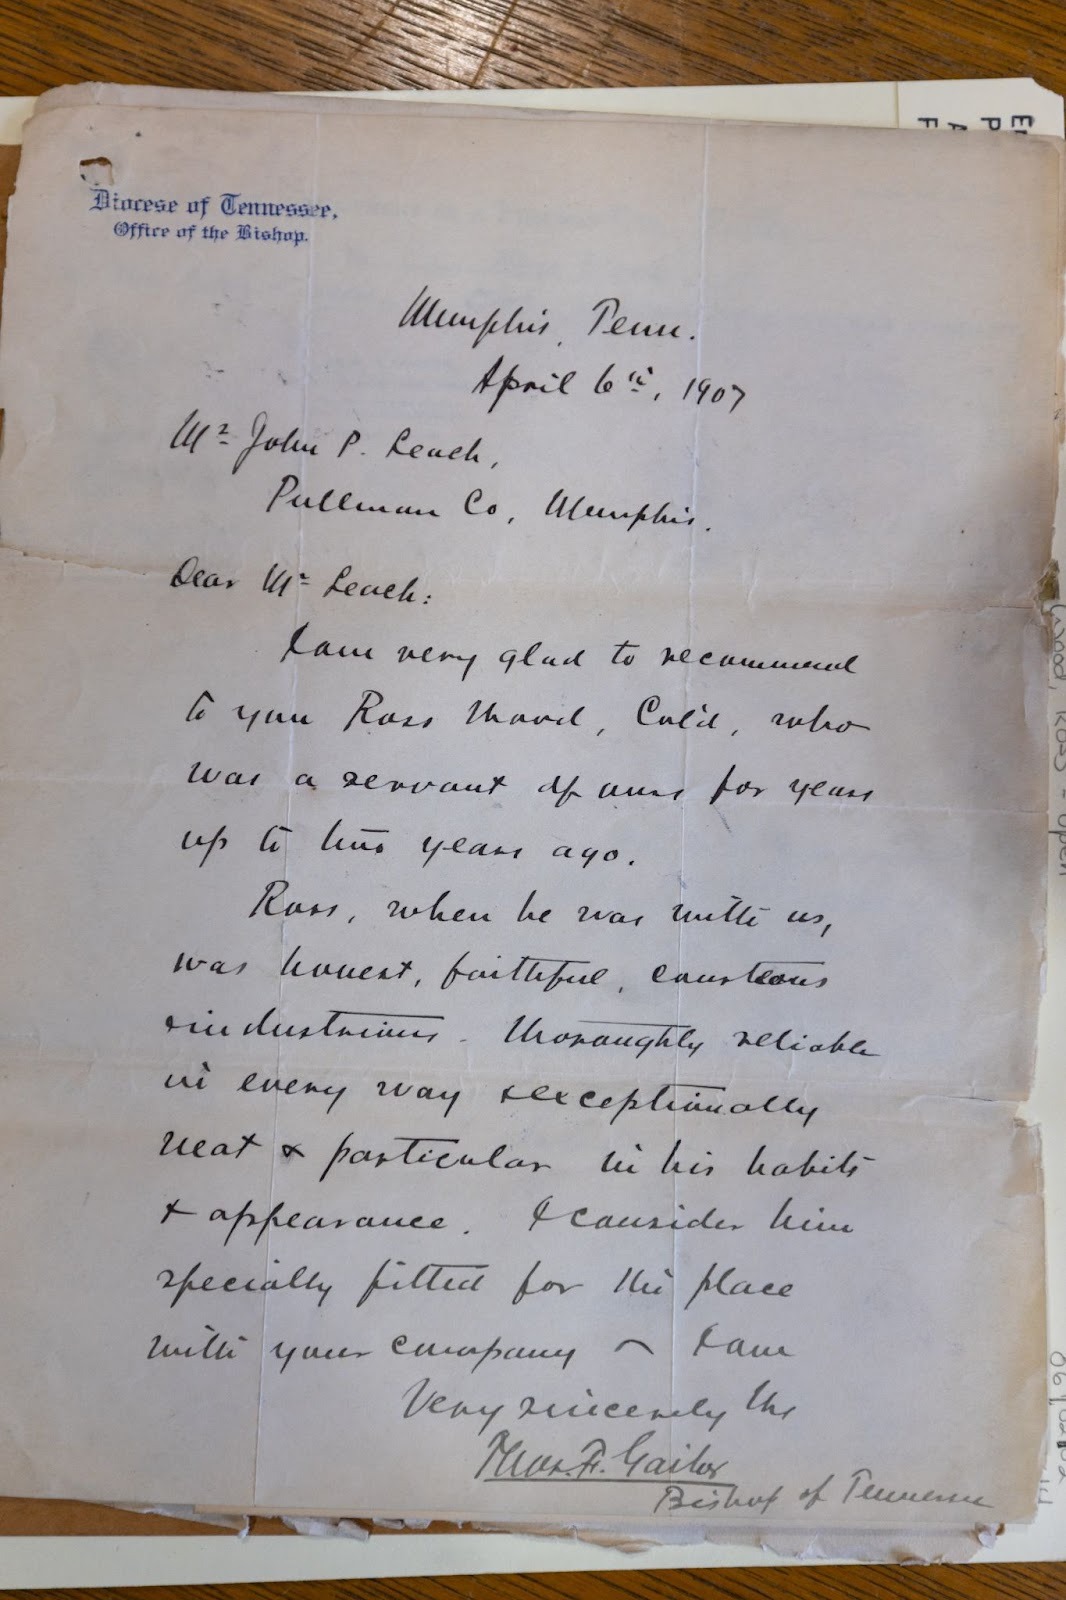 Diocese of Tennessee,
Office of the Bishop.
Memphis, Tenn.
April 6th, 1907
Mr John P. Leach,
Pullman Co, Memphis.
Dear Mr Leach:
I am very glad to recommend
to you Ross Wood, Col'd, who
was a servant of ours for years
up to two years ago.
Ross, when he was with us,
was honest, faithful, courteous
& industrious. Thoroughly reliable
in every way & exceptionally
neat & particular in his habits
& appearance. I consider him
specially fitted for the place
with your company — I am
Very sincerely Yrs
Thos. F. Gailor
Bishop of Tennessee
Wood, Ross - open